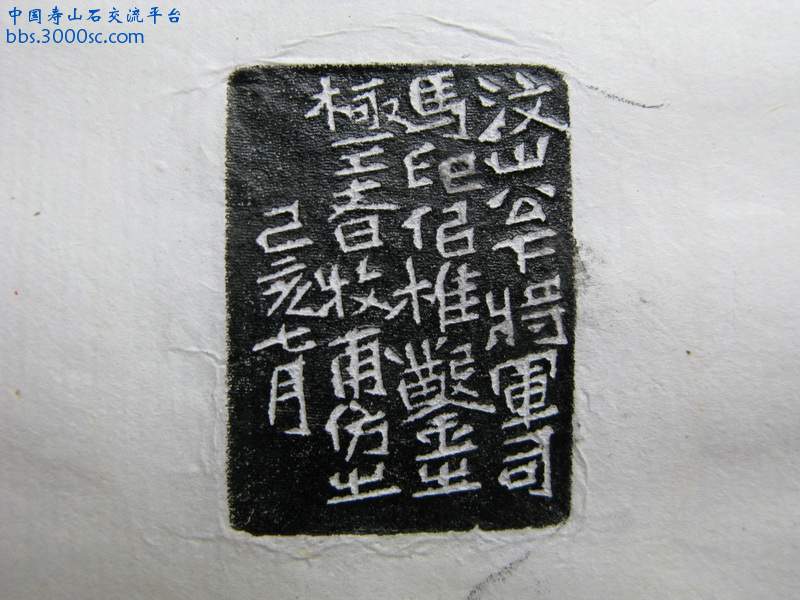 中国寿山石交流平台
bbs.3000sc.com
汶山公下將軍司
馬印佀椎鑿之
極工者牧甫仿之
己亥七月